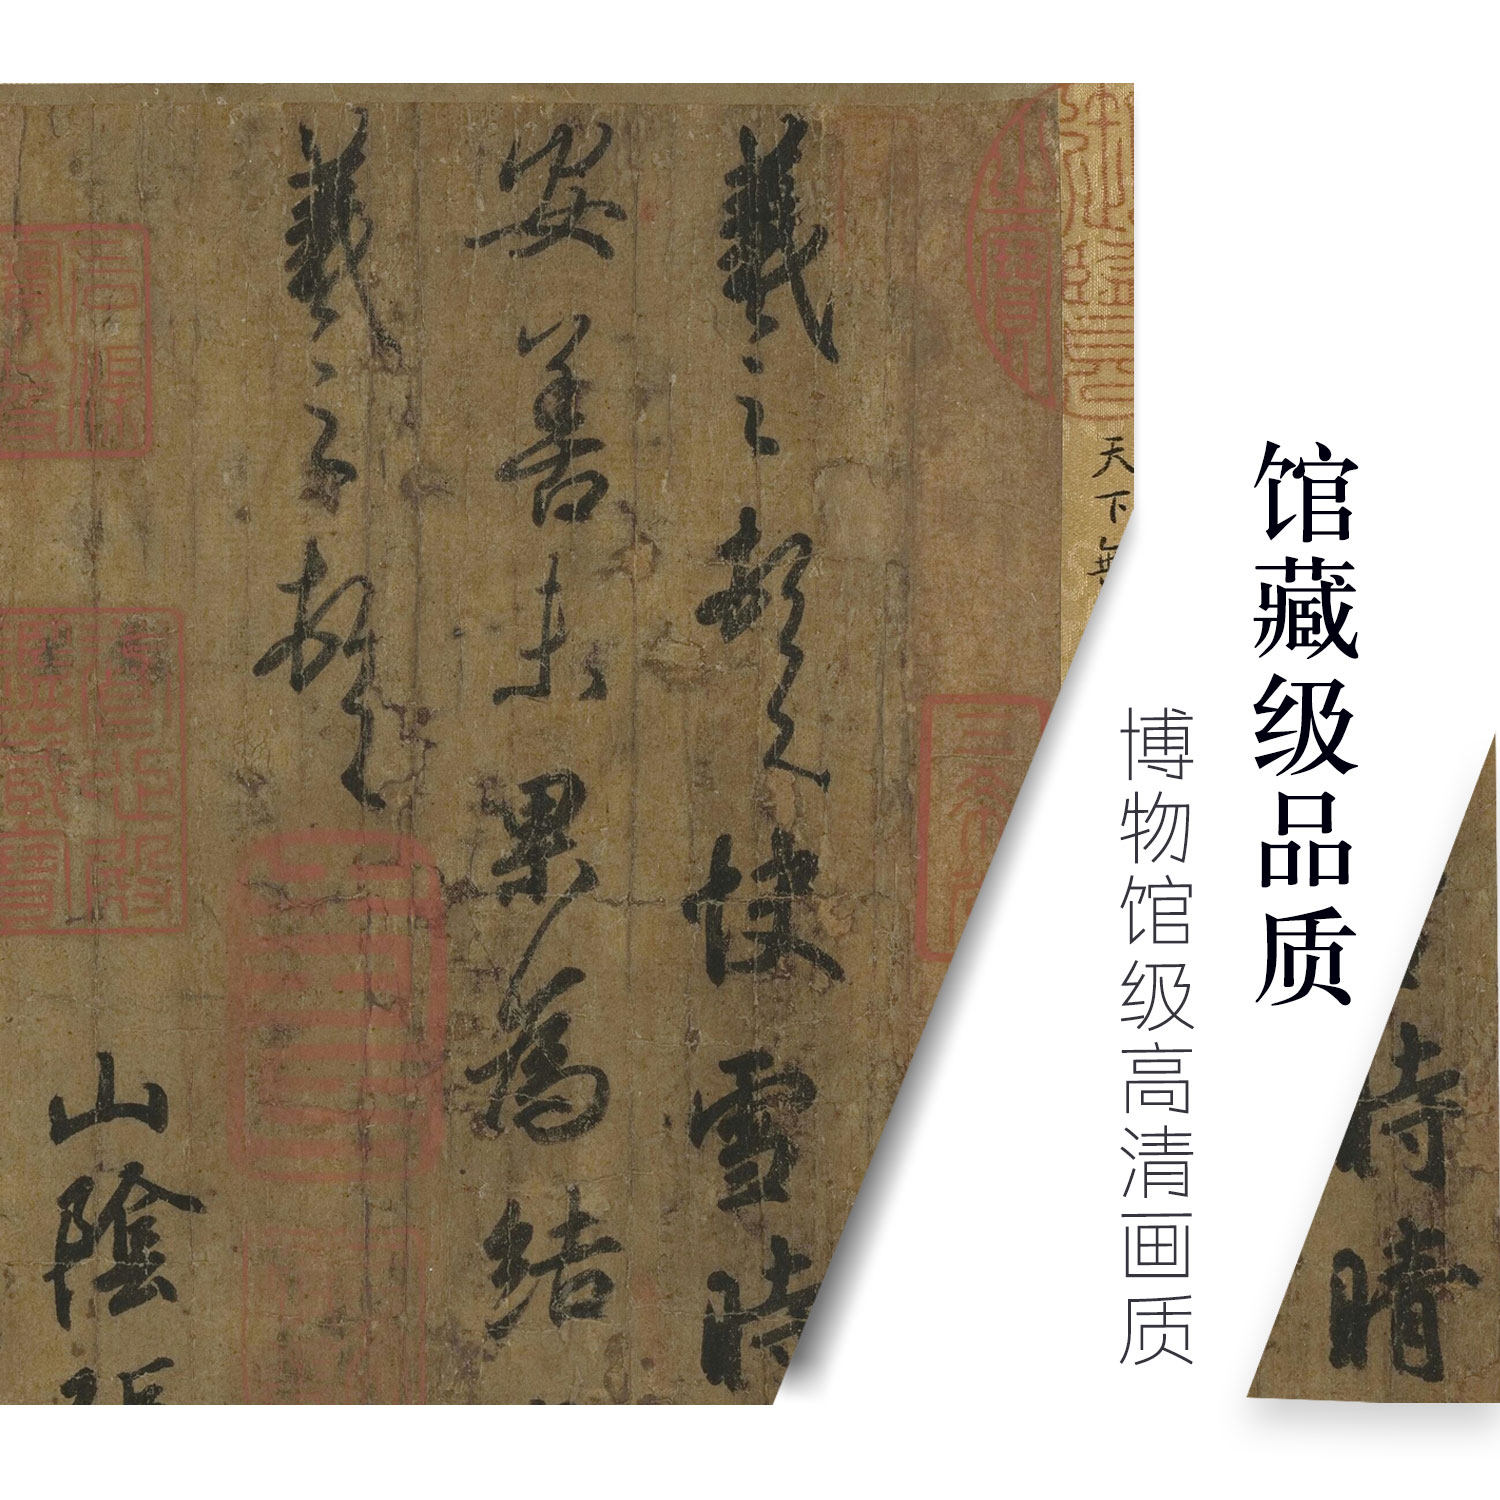 馆藏级品质
博物馆级高清画质
天下無
羲之頓首快雪時
安善未果為結
羲之頓首
山陰張
時晴